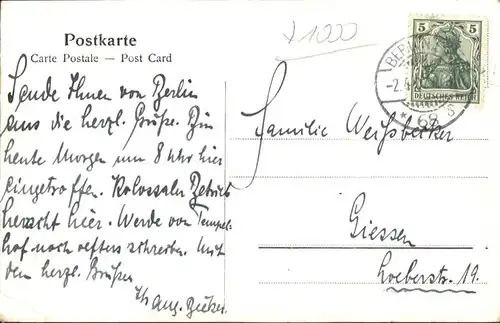 Postkarte
Carte Postale — Post Card
Sende Ihnen von Berlin
aus die herzl. Grüße. Bin
heute Morgen um 8 Uhr hier
eingetroffen. Kolossaler Betrieb
herrscht hier. Werde von Tempel-
hof noch öfters schreiben. Mit
den herzl. Grüßen
Ihr Aug.
1000
5 5
DEUTSCHES REICH
BERLIN
-2.4
* 68 s
Familie Weißbecker
Giessen
Loeberstr. 19.